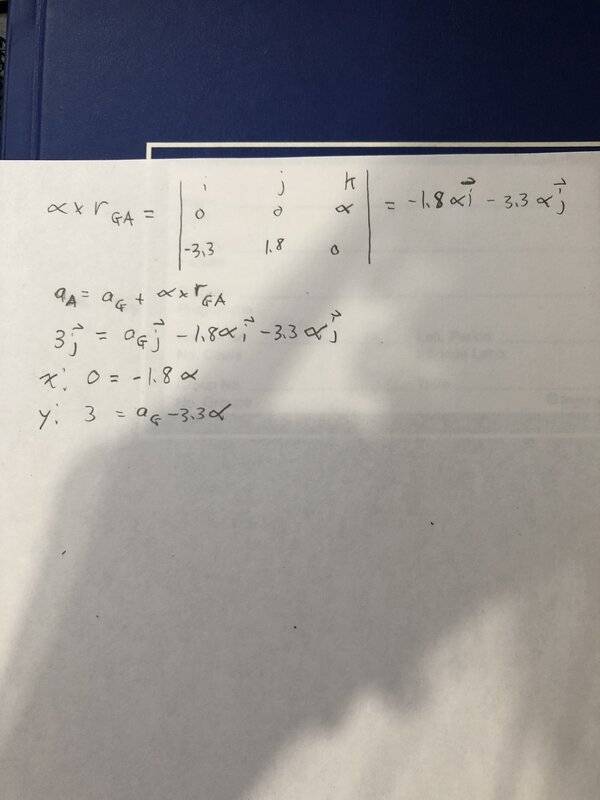 α × r_GA = | i j k | = -1.8 α i⃗ - 3.3 α j⃗
| 0 0 α |
| -3.3 1.8 0 |
a_A = a_G + α × r_GA
3 j⃗ = a_G j⃗ - 1.8 α i⃗ - 3.3 α j⃗
x: 0 = -1.8 α
y: 3 = a_G - 3.3 α